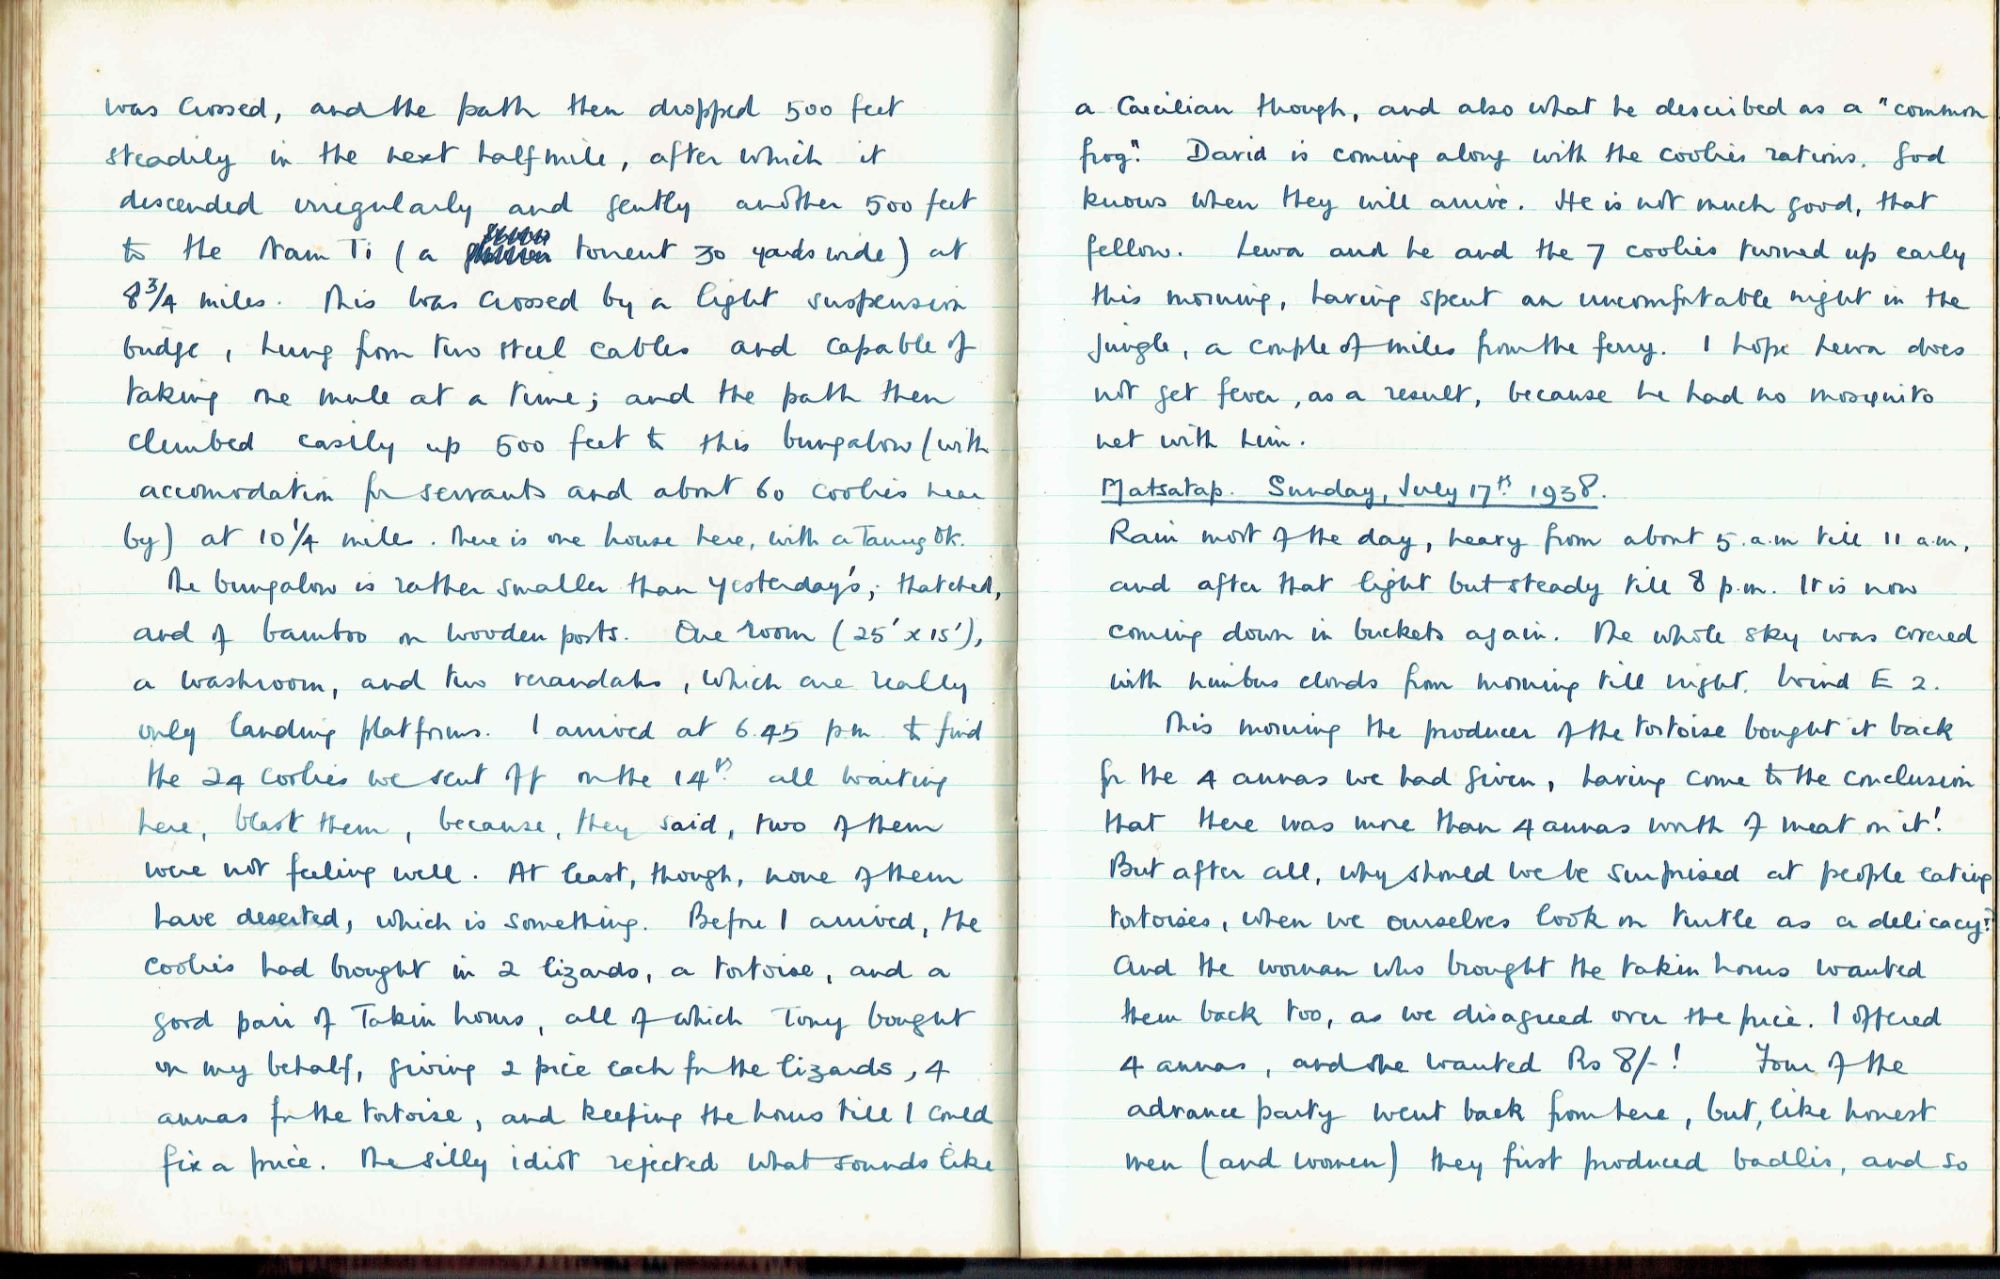 was crossed, and the path then dropped 500 feet
steadily in the next half mile, after which it
descended irregularly and gently another 500 feet
to the Nam Ti (a torrent 30 yards wide) at
8 3/4 miles. This was crossed by a light suspension
bridge, hung from two steel cables and capable of
taking one mule at a time; and the path then
climbed easily up 500 feet to this bungalow (with
accomodation for servants and about 60 coolies near
by) at 10 1/4 miles. There is one house here, with a Taung Ok.
The bungalow is rather smaller than yesterday's; thatched,
and of bamboo on wooden posts. One room (25' x 15'),
a washroom, and two verandahs, which are really
only landing platforms. I arrived at 6.45 p.m. to find
the 24 coolies we sent off on the 14th all waiting
here, blast them, because, they said, two of them
were not feeling well. At least, though, none of them
have deserted, which is something. Before I arrived, the
coolies had brought in 2 lizards, a tortoise, and a
good pair of Takin horns, all of which Tony bought
on my behalf, giving 2 pice each for the lizards, 4
annas for the tortoise, and keeping the horns till I could
fix a price. The silly idiot rejected what sounds like
a Caecilian though, and also what he described as a "common
frog". David is coming along with the coolies rations. God
knows when they will arrive. He is not much good, that
fellow. Lewa and he and the 7 coolies turned up early
this morning, having spent an uncomfortable night in the
jungle, a couple of miles from the ferry. I hope Lewa does
not get fever, as a result, because he had no mosquito
net with him.
Matsatap. Sunday, July 17th 1938.
Rain most of the day, heavy from about 5.a.m till 11 a.m,
and after that light but steady till 8 p.m. It is now
coming down in buckets again. The whole sky was covered
with nimbus clouds from morning till night. Wind E 2.
This morning the producer of the tortoise bought it back
for the 4 annas we had given, having come to the conclusion
that there was more than 4 annas worth of meat on it!
But after all, why should we be surprised at people eating
tortoises, when we ourselves look on turtle as a delicacy?
And the woman who brought the takin horns wanted
them back too, as we disagreed over the price. I offered
4 annas, and she wanted Rs 8/-! Four of the
advance party went back from here, but, like honest
men (and women) they first produced badlis, and so